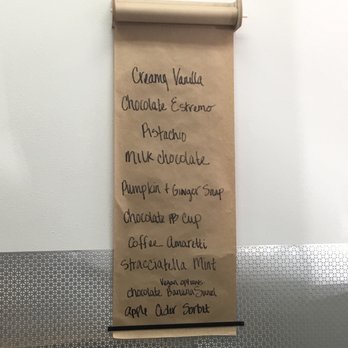 Creamy Vanilla
Chocolate Estremo
Pistachio
Milk chocolate
Pumpkin + Ginger Snap
Chocolate PB Cup
Coffee Amaretti
Stracciatella Mint
Vegan options
chocolate Banana
apple Cider Sorbet